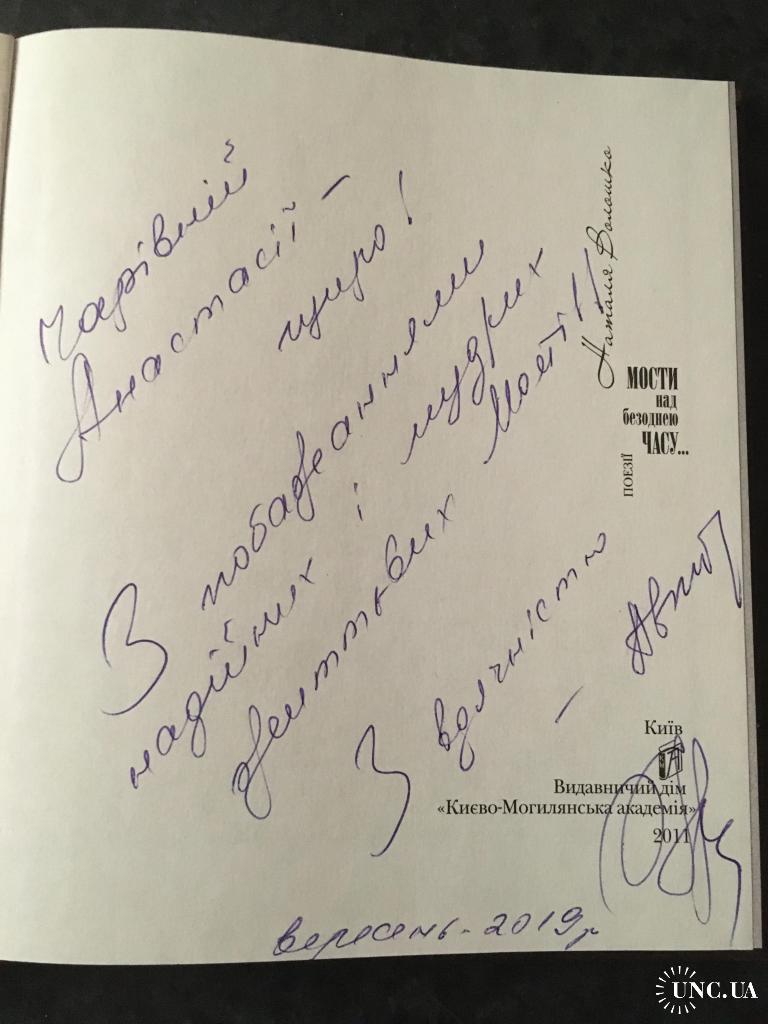 Чарівній
Анастасії –
щиро!
З побажаннями
надійних і мудрих
життєвих мостів!!
З вдячністю
– Автор
вересень - 2019 р
Наталя Волошко
МОСТИ
над
безоднею
ЧАСУ...
ПОЕЗІЇ
Київ
Видавничий дім
«Києво-Могилянська академія»
2011
UNC.UA